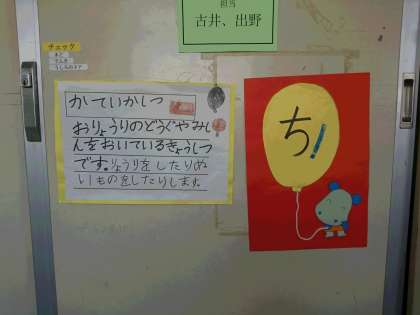 担当
古井、出野
チェック
かていかしつ
おりょうりのどうぐやみし
んをおいているきょうしつ
です。りょうりをしたりぬ
いものをしたりします。
ち